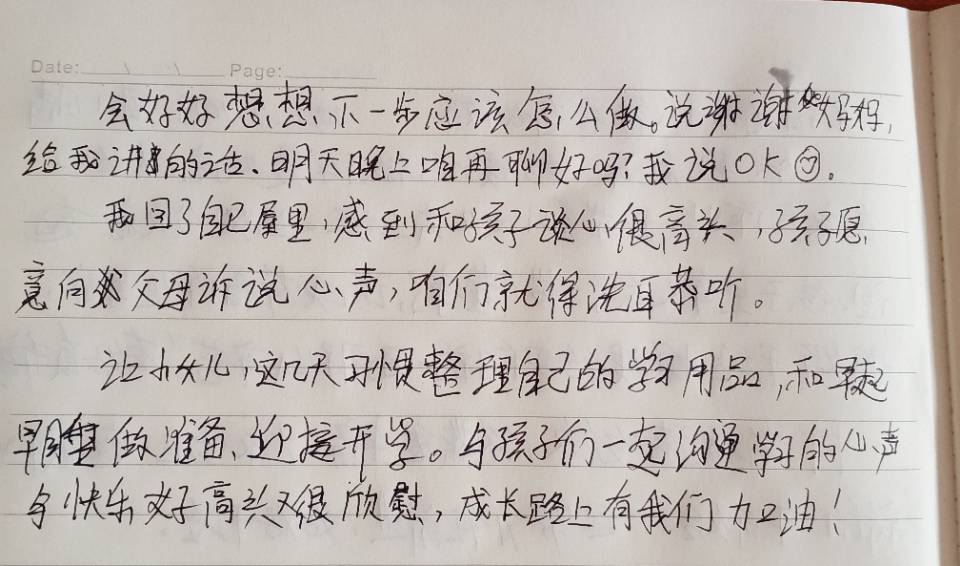 Date: Page:
会好好想想下一步应该怎么做。说谢谢妈妈,
给我讲的话、明天晚上咱再聊好吗?我说OK☺.
我回了自己屋里,感到和孩子谈心很高兴,孩子愿
意向父母诉说心声,咱们就得洗耳恭听。
让小女儿,这几天习惯整理自己的学习用品,和早起
早睡做准备、迎接开学。与孩子们一起沟通学习的心声
与快乐好高兴又很欣慰,成长路上有我们加油!